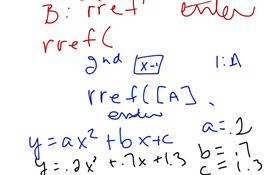 B: rref enter
rref(
2nd x-1 1:A
rref([A]
enter
y=ax²+bx+c a=.2
y=.2x²+.7x+1.3 b=.7
c=1.3